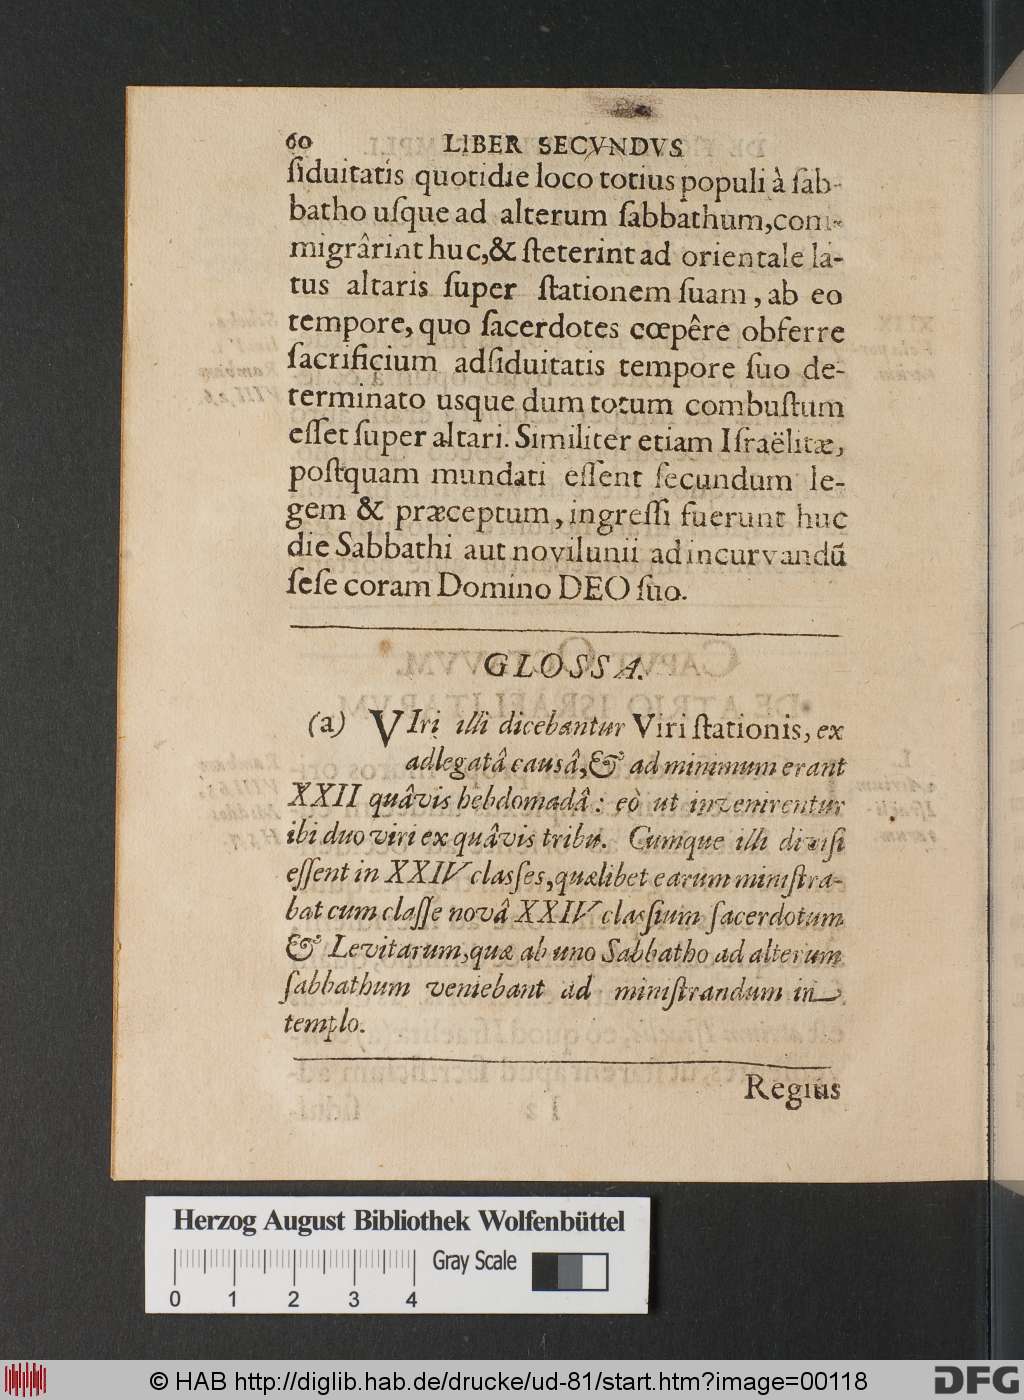 60 LIBER SECVNDVS
ſiduitatis quotidie loco totius populi à ſab-
batho uſque ad alterum ſabbathum, com-
migrârint huc, & ſteterint ad orientale la-
tus altaris ſuper ſtationem ſuam, ab eo
tempore, quo ſacerdotes cœpêre obferre
ſacrificium adſiduitatis tempore ſuo de-
terminato usque dum totum combuſtum
eſſet ſuper altari. Similiter etiam Iſraëlitæ,
poſtquam mundati eſſent ſecundum le-
gem & præceptum, ingreſſi fuerunt huc
die Sabbathi aut novilunii ad incurvandū
ſeſe coram Domino DEO ſuo.
GLOSSA.
(a) VIri illi dicebantur Viri ſtationis, ex
adlegatâ causâ, & ad minimum erant
XXII quâvis hebdomadâ: eò ut invenirentur
ibi duo viri ex quâvis tribu. Cumque illi diviſi
eſſent in XXIV classes, quælibet earum miniſtra-
bat cum claſſe novâ XXIV claſsium ſacerdotum
& Levitarum, quæ ab uno Sabbatho ad alterum
ſabbathum veniebant ad miniſtrandum in
templo.
Regius
Herzog August Bibliothek Wolfenbüttel
Gray Scale
0 1 2 3 4
© HAB http://diglib.hab.de/drucke/ud-81/start.htm?image=00118
DFG